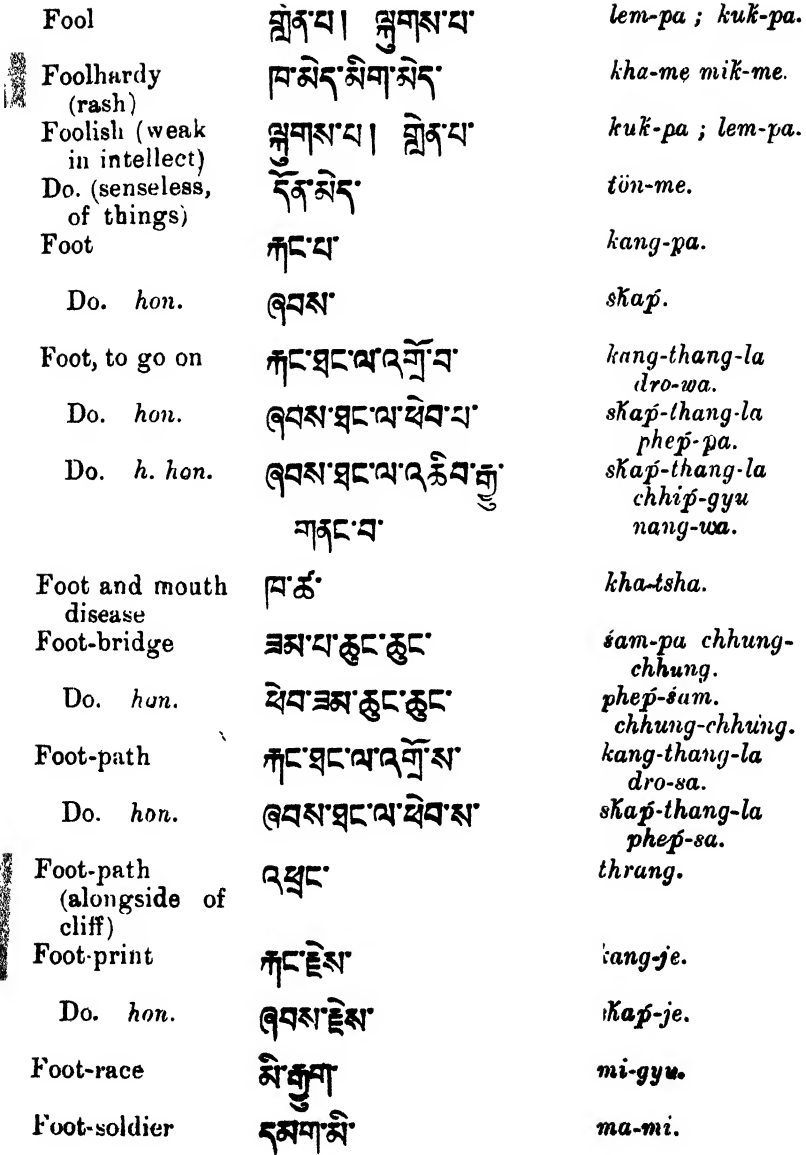 Fool གླེན་པ། ལྐུགས་པ་ lem-pa ; kuk-pa.
Foolhardy ཁ་མེད་མིག་མེད་ kha-me mik-me.
(rash)
Foolish (weak ལྐུགས་པ། གླེན་པ་ kuk-pa ; lem-pa.
in intellect)
Do. (senseless, དོན་མེད་ tön-me.
of things)
Foot རྐང་པ་ kang-pa.
Do. hon. ཞབས་ shap.
Foot, to go on རྐང་ཐང་ལ་འགྲོ་བ་ kang-thang-la
dro-wa.
Do. hon. ཞབས་ཐང་ལ་ཕེབ་པ་ shap-thang-la
phep-pa.
Do. h. hon. ཞབས་ཐང་ལ་འཆིབ་རྒྱུ་ shap-thang-la
chhip-gyu
གནང་བ་ nang-wa.
Foot and mouth ཁ་ཚ་ kha-tsha.
disease
Foot-bridge ཟམ་པ་ཆུང་ཆུང་ śam-pa chhung-
chhung.
Do. hon. ཕེབ་ཟམ་ཆུང་ཆུང་ phep-śam.
chhung-chhung.
Foot-path རྐང་ཐང་ལ་འགྲོ་ས་ kang-thang-la
dro-sa.
Do. hon. ཞབས་ཐང་ལ་ཕེབ་ས་ shap-thang-la
phep-sa.
Foot-path འཕྲང་ thrang.
(alongside of
cliff)
Foot-print རྐང་རྗེས་ kang-je.
Do. hon. ཞབས་རྗེས་ shap-je.
Foot-race མི་རྒྱུག་ mi-gyu.
Foot-soldier དམག་མི་ ma-mi.